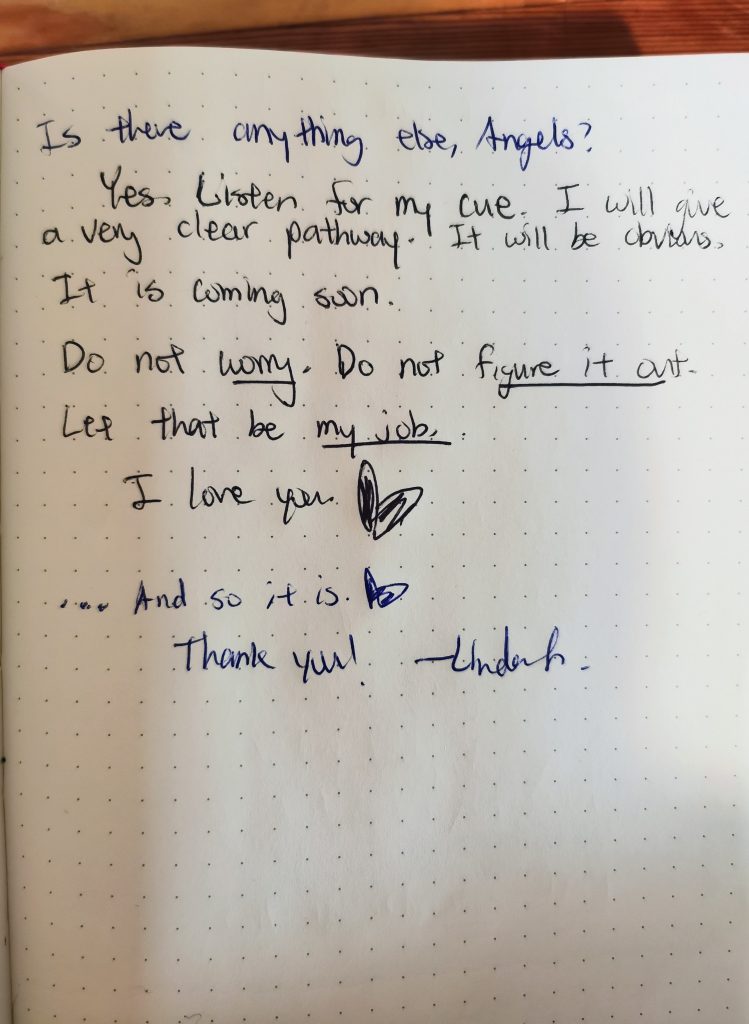 Is there anything else, Angels?
Yes. Listen for my cue. I will give
a very clear pathway. It will be obvious.
It is coming soon.
Do not worry. Do not figure it out.
Let that be my job.
I love you.
.... And so it is.
Thank you! —